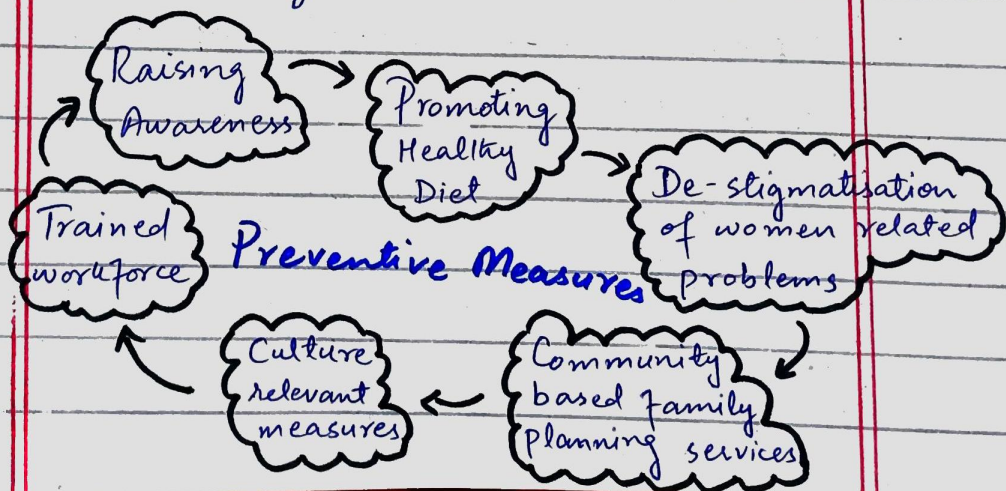 Raising
Awareness
Promoting
Healthy
Diet
De-stigmatisation
of women related
problems
Trained
workforce
Preventive Measures
Community
based family
planning services
Culture
relevant
measures